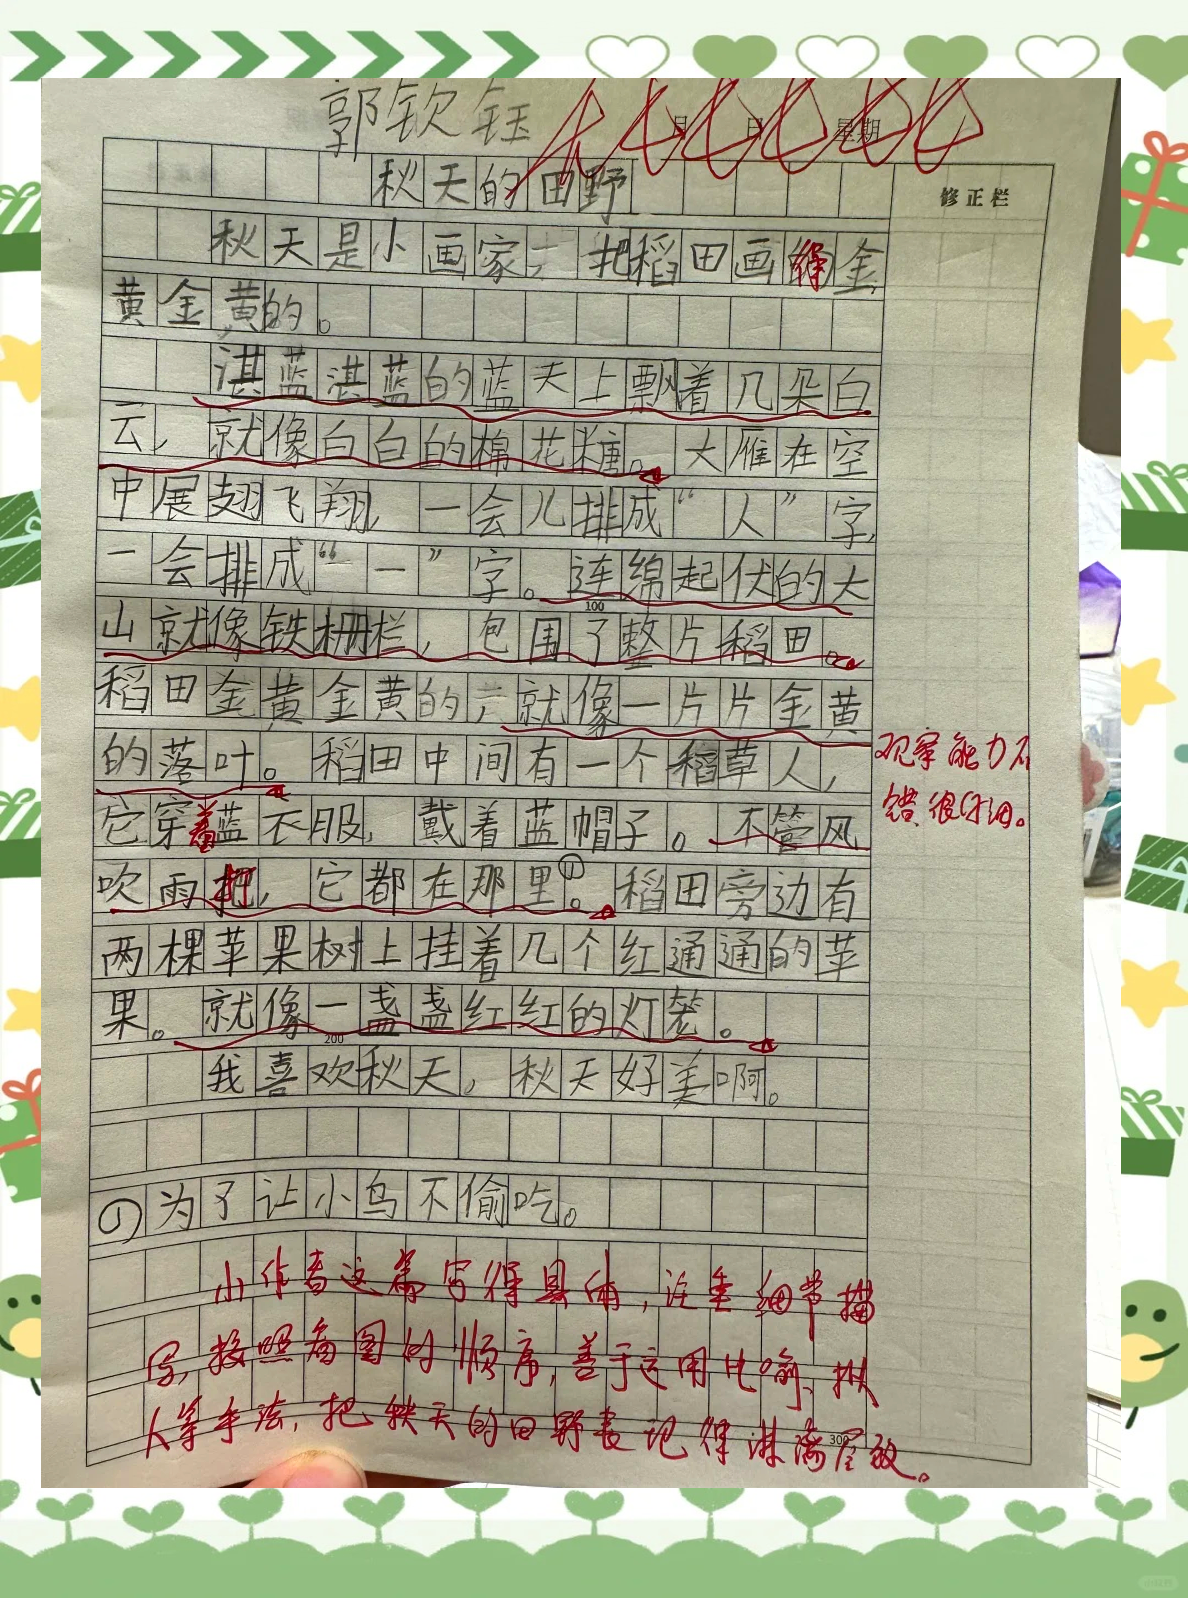 郭钦钰
月 日 星期
秋天的田野
修正栏
秋天是小画家，把稻田画得金
黄金黄的。
湛蓝湛蓝的蓝天上飘着几朵白
云，就像白白的棉花糖。大雁在空
中展翅飞翔，一会儿排成“人”字，
一会排成“一”字。连绵起伏的大
100
山就像铁栅栏，包围了整片稻田。
稻田金黄金黄的，就像一片片金黄
的落叶。稻田中间有一个稻草人，
观察能力不
错，很仔细。
它穿着蓝衣服，戴着蓝帽子。不管风
吹雨把，它都在那里①。稻田旁边有
两棵苹果树上挂着几个红通通的苹
果。就像一盏盏红红的灯笼。
200
我喜欢秋天，秋天好美啊。
①为了让小鸟不偷吃。
小作者这篇写得具体，注重细节描
写，按照看图的顺序，善于运用比喻、拟
人等手法，把秋天的田野表记得淋漓尽致。
300
小红书